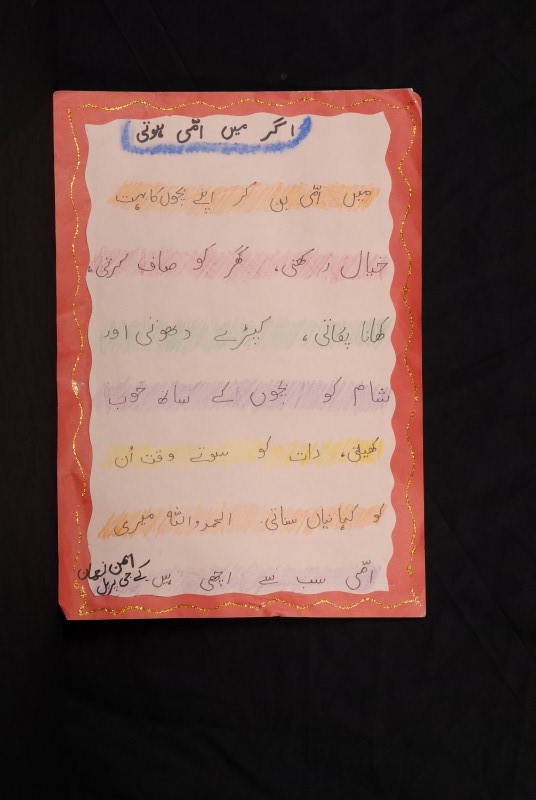 اگر میں امّی ہوتی
میں امّی بن کر اپنے بچوں کا بہت
خیال رکھتی، گھر کو صاف کرتی،
کھانا پکاتی، کپڑے دھوتی اور
شام کو بچوں کے ساتھ خوب
کھیلتی، رات کو سوتے وقت اُن
کو کہانیاں سناتی۔ الحمدوالله میری
امّی سب سے اچھی ہیں
ایمن نعمان
کے جی پرپل